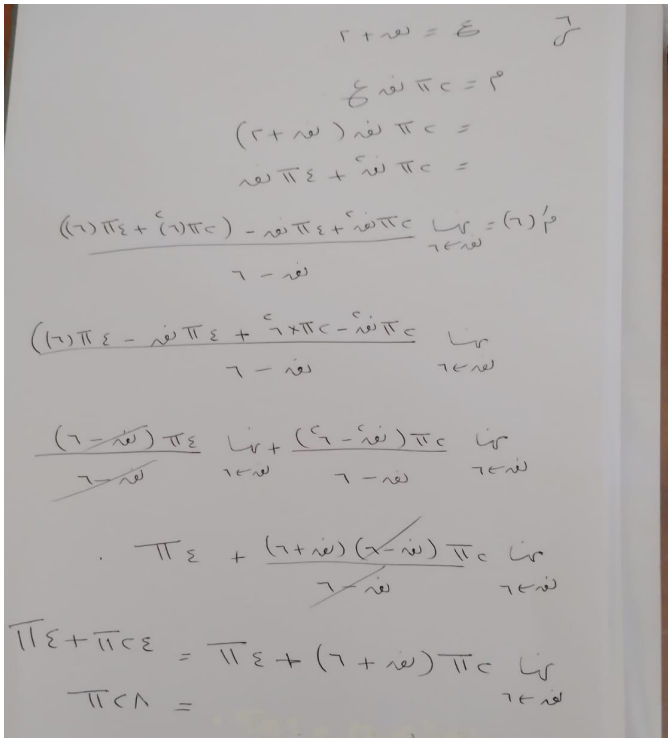 ع = نق + ٢
م = ٢ π نق ع
= ٢ π نق (نق + ٢)
= ٢ π نق٢ + ٤ π نق
مَ (٦) = نهــا نق←٦ ٢ π نق٢ + ٤ π نق - (٢ π (٦)٢ + ٤ π (٦)) / نق - ٦
نهــا نق←٦ ٢ π نق٢ - ٢ π × ٦٢ + ٤ π نق - ٤ π (٦)) / نق - ٦
نهــا نق←٦ ٢ π (نق٢ - ٦٢) / نق - ٦ + نهــا نق←٦ ٤ π (نق - ٦) / نق - ٦
نهــا نق←٦ ٢ π (نق - ٦) (نق + ٦) / نق - ٦ + ٤ π .
نهــا نق←٦ ٢ π (نق + ٦) + ٤ π = ٢٤ π + ٤ π
= ٢٨ π